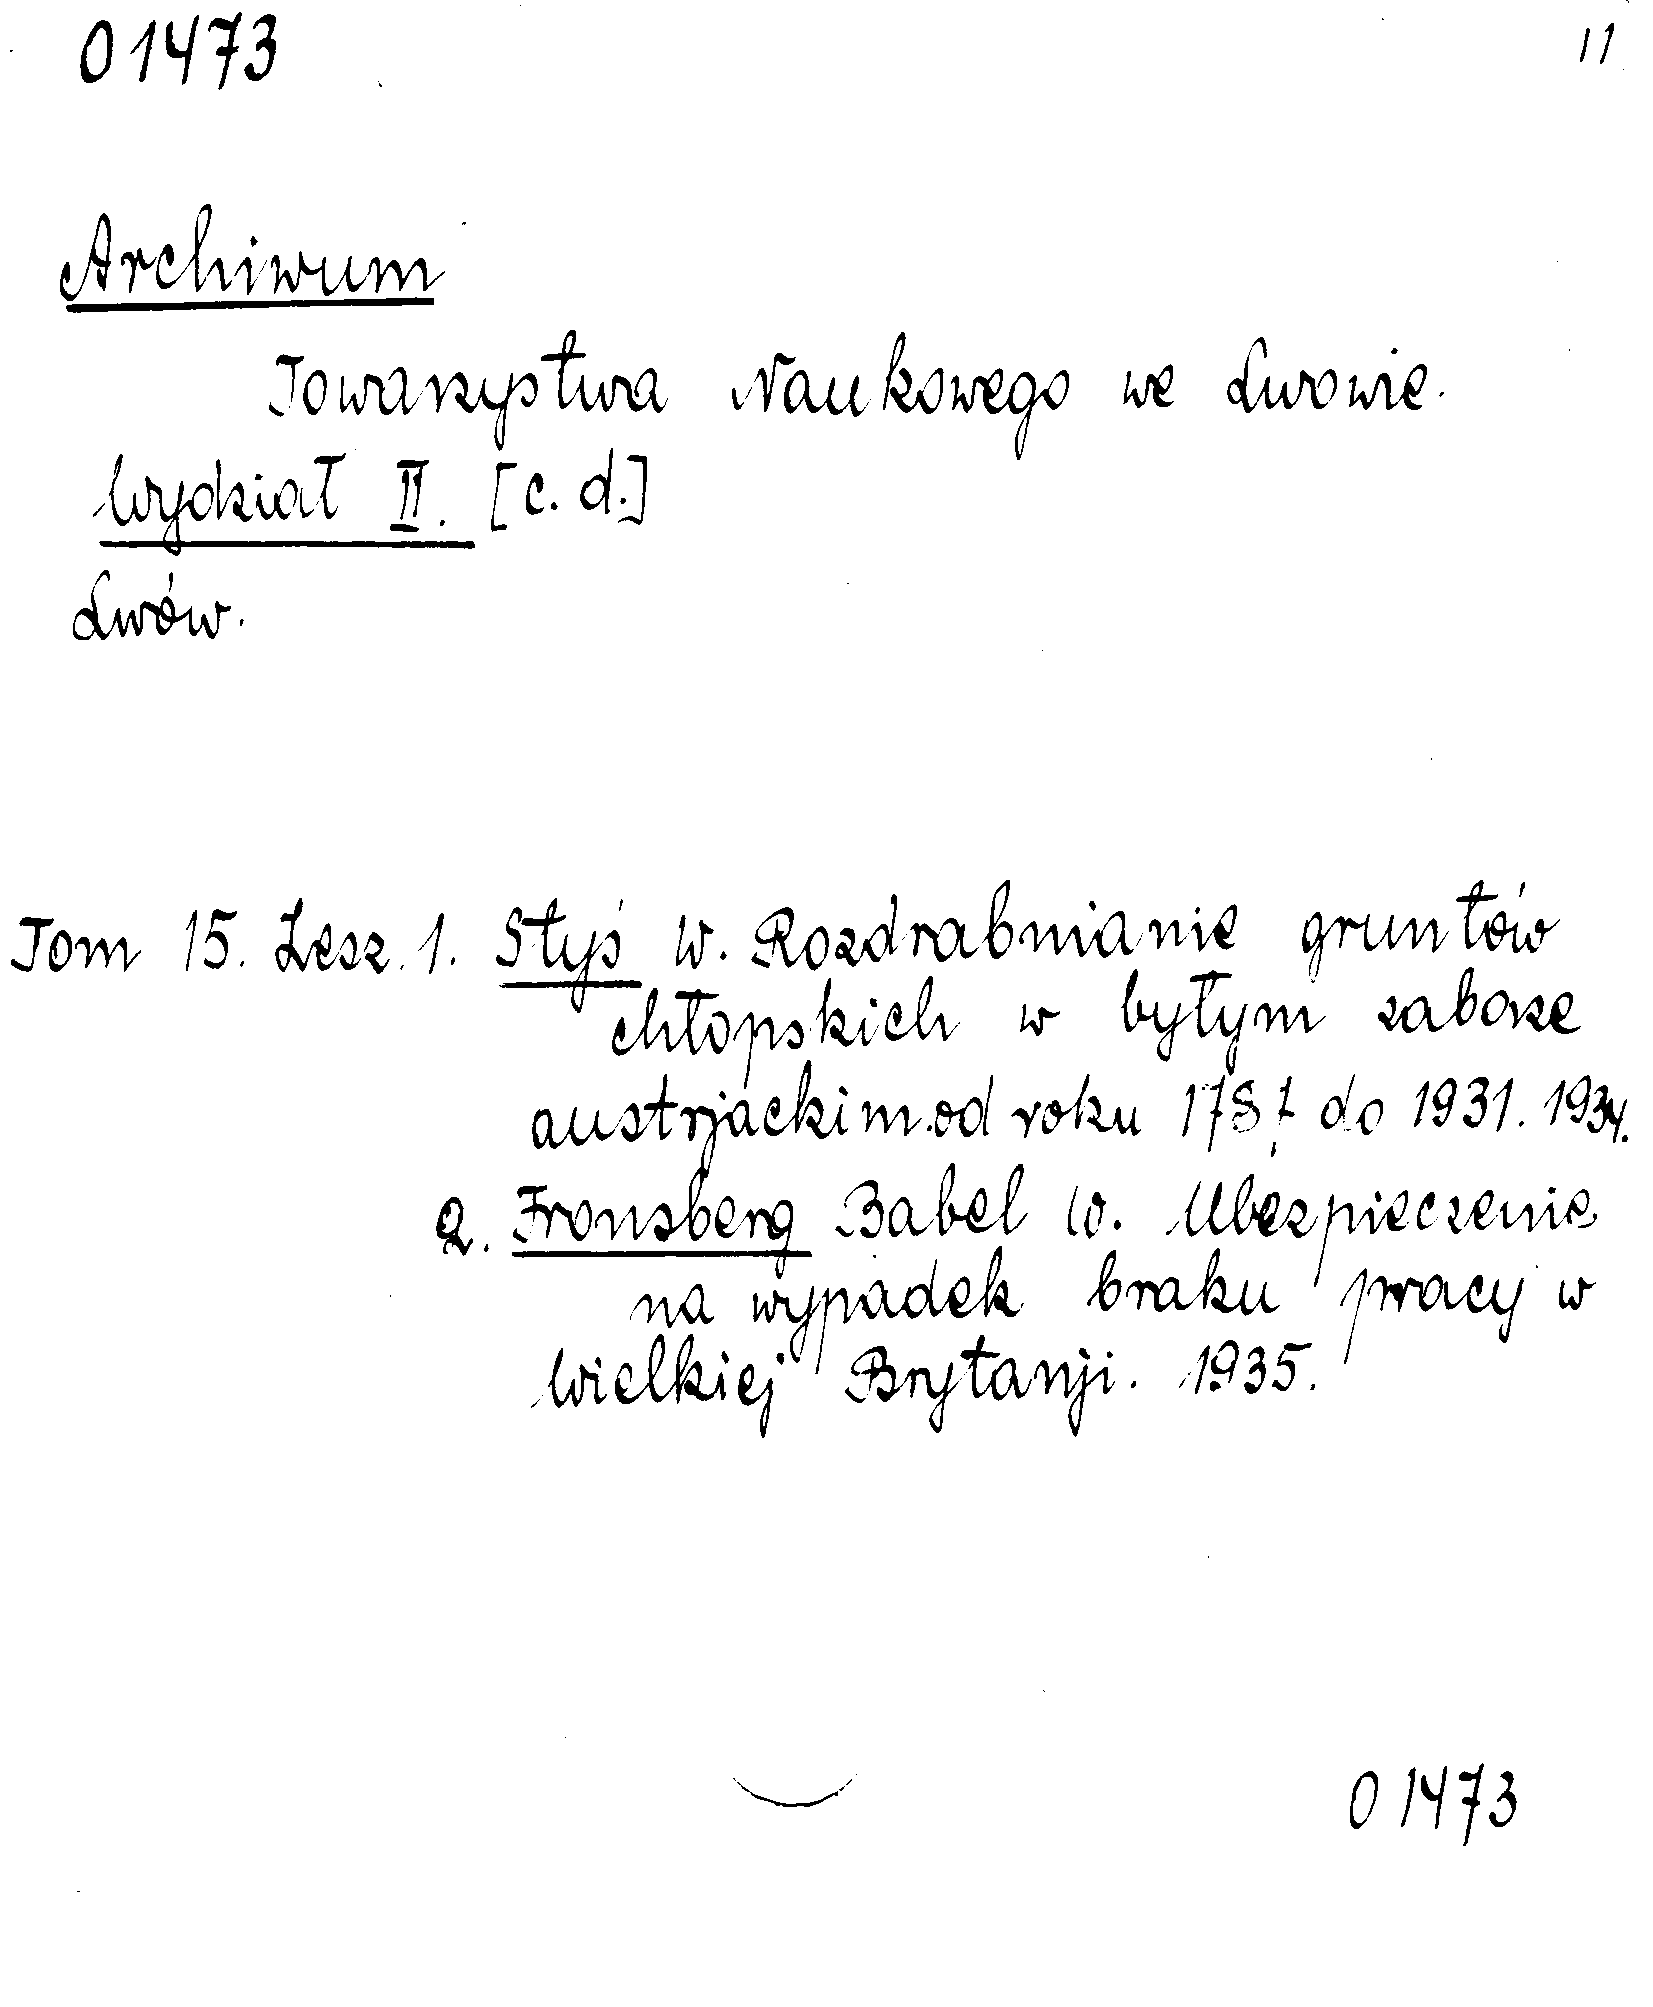 01473
11
Archiwum
Towarzystwa Naukowego we Lwowie.
Wydział II. [c. d.]
Lwów.
Tom 15. Zesz. 1. Styś W. Rozdrabnianie gruntów
chłopskich w byłym zaborze
austrjackim od roku 1787 do 1931. 1934.
2. Fronsberg Babel W. Ubezpieczenie
na wypadek braku pracy w
Wielkiej Brytanji. 1935.
01473